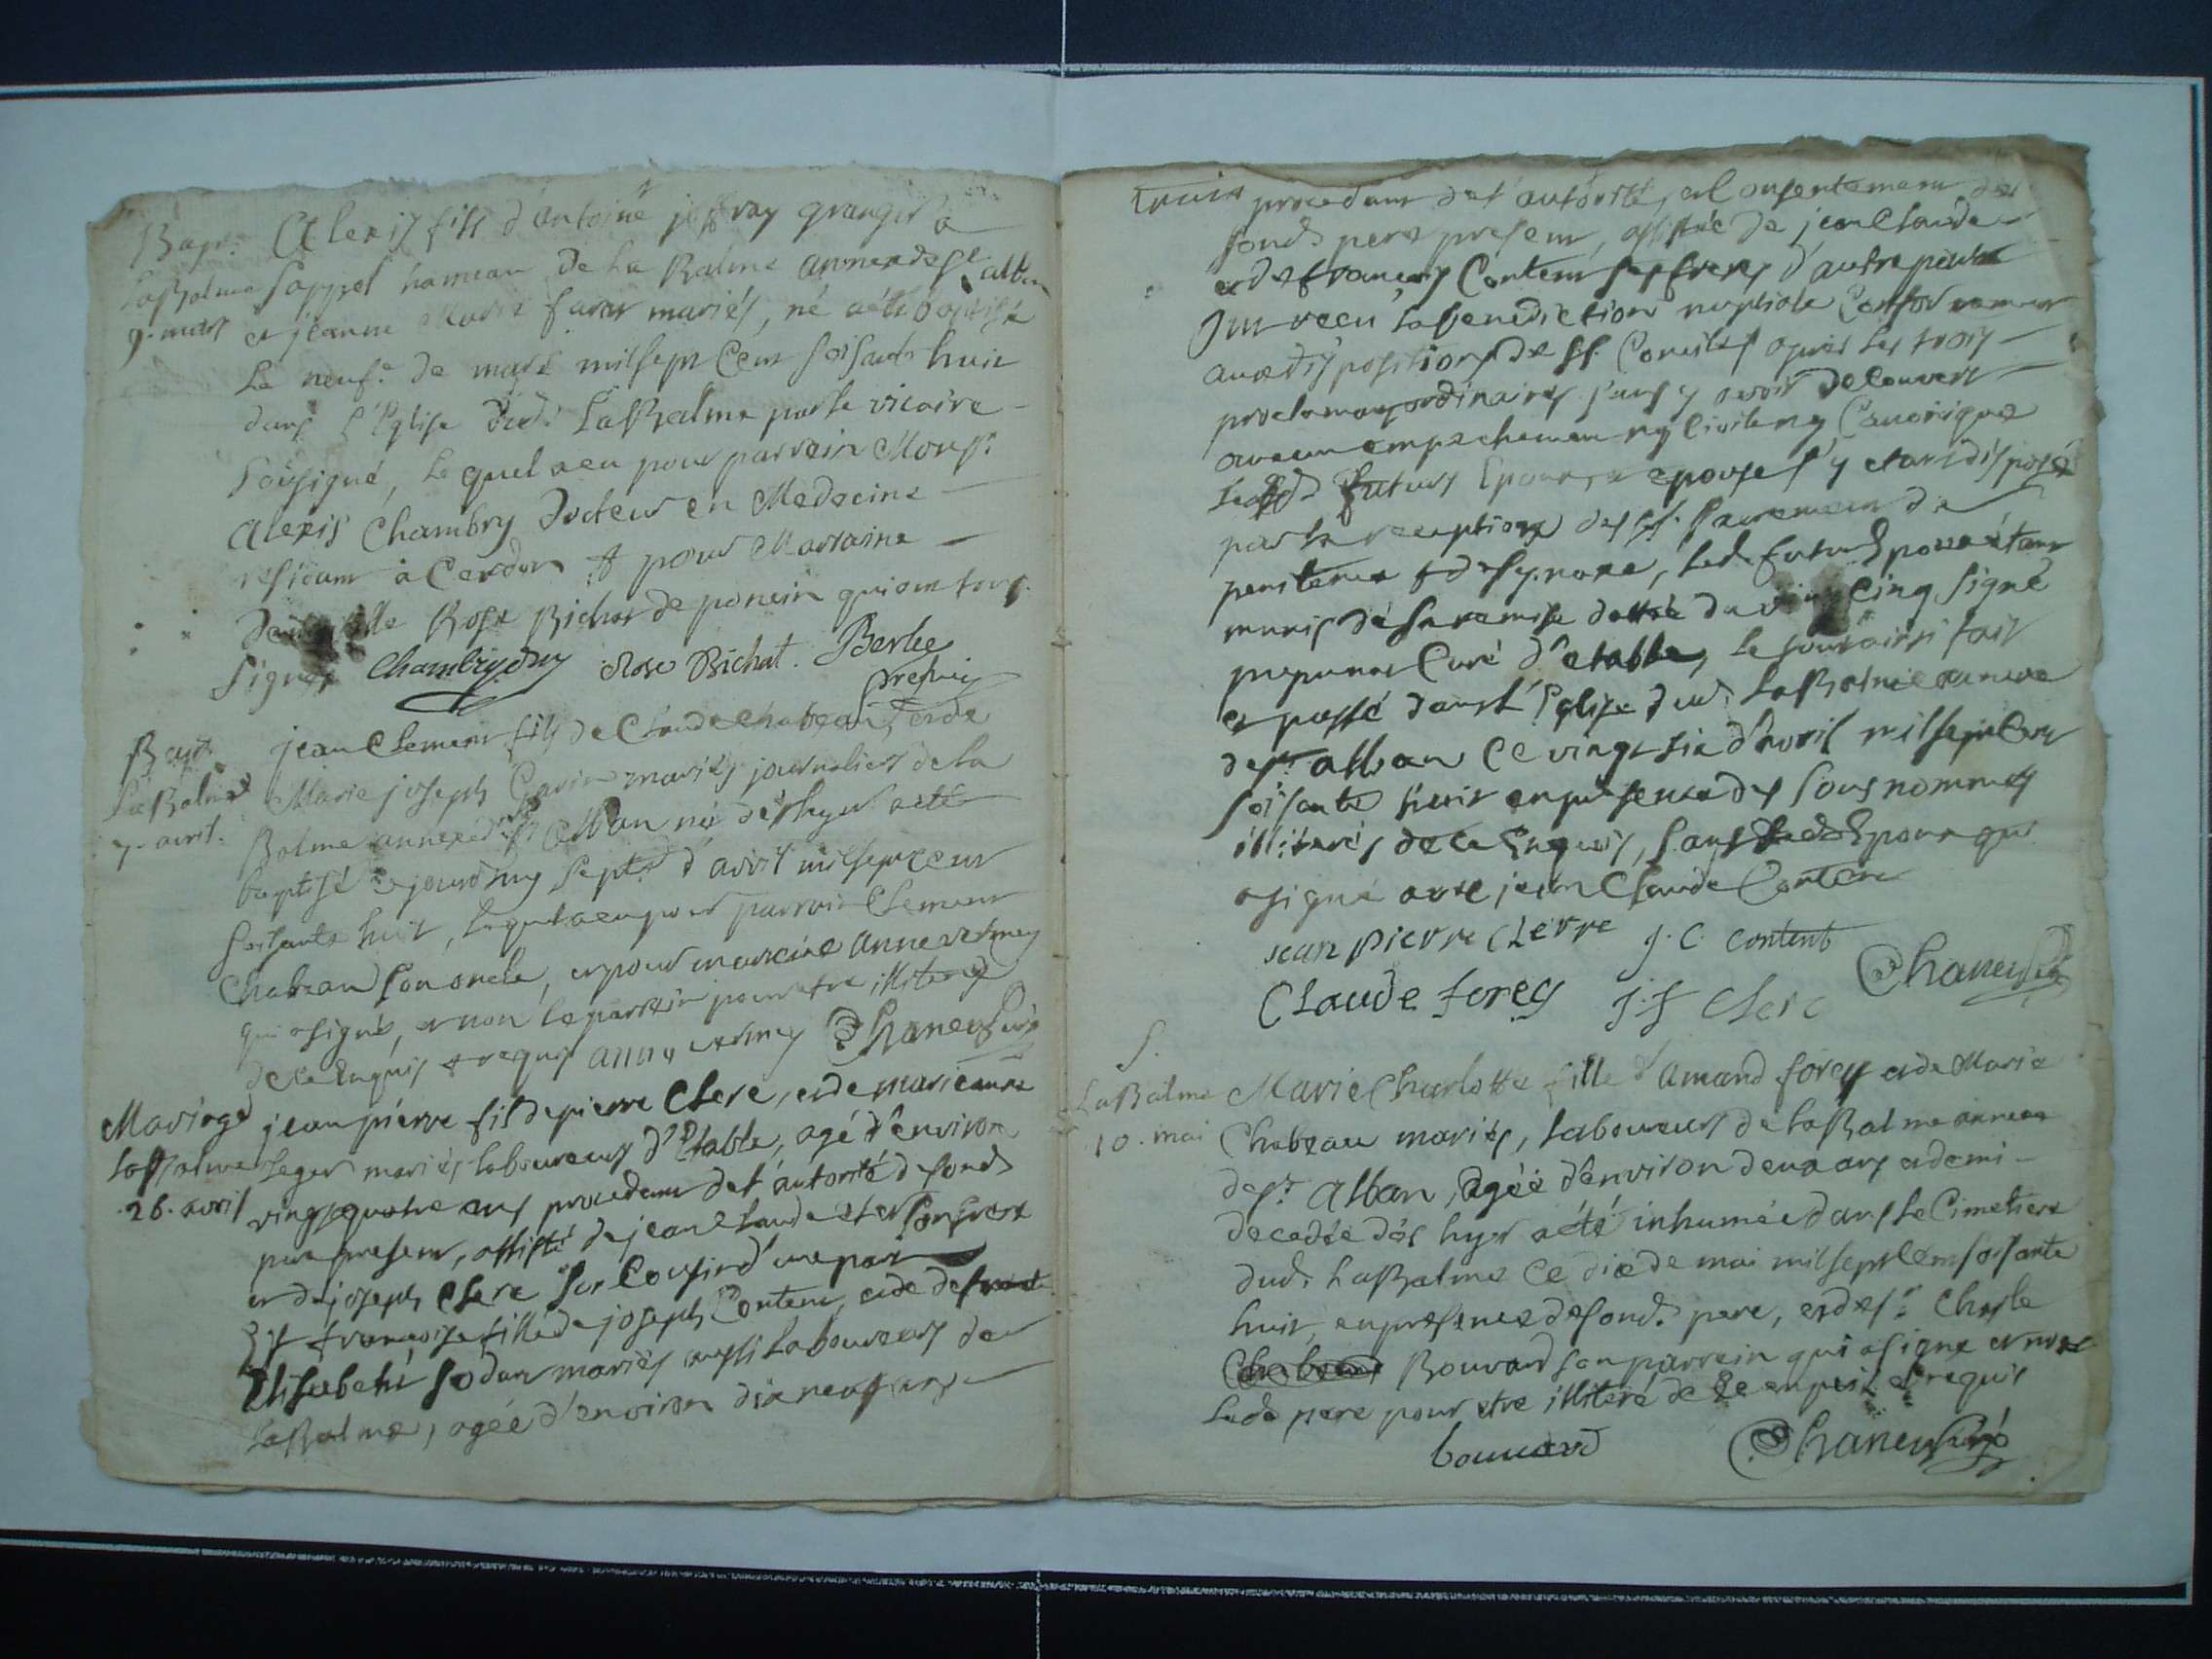 Bapt. Alexis fils d'antoine jeffray granger a
LaBalme Sappel hameau de La Balme annexe de St alban
9. mars et jeanne Marie mariés, né a été baptisé
Le neuf.e de mars mil sept cent soisante huit
dans l'Eglise dud. LaBalme par le vicaire
sousigné, lequel a eu pour parrein Monsr.
Alexis Chambry Docteur en Medecine
residant a Cerdon et pour Marraine
Rose Bichat de poncin qui ont tous
signés Chambry Rose Bichat. Berlie
Bapt. jean Clement fils de Claude chabeau, et de
LaBalme Marie joseph mariés journaliers de la
7. avril. Balme annexe de St Alban né dès hyer a été
baptisé ce jourd'huy sept.e d'avril mil sept cent
soisante huit, lequel a eu pour parrein Clement
Chabeau son oncle, et pour marraine anne
qui a signé, et non le parrein pour etre illiteré
de ce Enquis et requis
Mariage jean pierre fils de pierre Clerc, et de marie anne
LaBalme Leger mariés laboureurs d'Etable, agé d'environ
26. avril vingt quatre ans procedant de l'autorité de sond.
pere present, assisté de jean Claude Clerc son frere
et de joseph Clerc son Cousin d'une part
Et francoise fille de joseph Content, et de
Elisabeth Sodan mariés aussi laboureurs de
LaBalme, agée d'environ dix neuf ans
procedant de l'autorité, et Consentement de
sond. pere present, assistée de jean Claude
et de francois Content ses freres d'autre part
Ont recu la benediction nuptiale Conformement
aux dispositions de SS. Conciles apres les trois
proclamaons ordinaires sans y avoir decouvert
aucun empechement ny Civil ny Canonique
Lesd. futurs Epoux, et epouse s'y etant disposés
par la reception des SS. Sacrement de
penitence et de Synaxe, led. futur Epoux étant
munis de sa remise dattée du vingt Cinq signé
Curé d'etable, le tout ainsi fait
et passé dans l'Eglise dud. LaBalme annexe
de St. alban ce vingt six d'avril mil sept cent
soisante huit en presence des sous nommés
illiterés de ce Enquis, sauf led. Epoux qui
a signé avec jean Claude Content
jean pierre Clerre J. C. Content
Claude forey J. J Clerc
S.
LaBalme Marie Charlotte fille d'amand forey et de Marie
10. mai Chabeau mariés, laboureurs de LaBalme annexe
de St. Alban, agée d'environ deux ans et demi
decedée dès hyer a été inhumée dans le Cimetiere
dud. LaBalme ce dix de mai mil sept cent soisante
huit, en presence de sond. pere, et de Sr. Charle
Bouvard son parrein qui a signé et non
led. pere pour etre illiteré de ce enquis et requis
bouvard